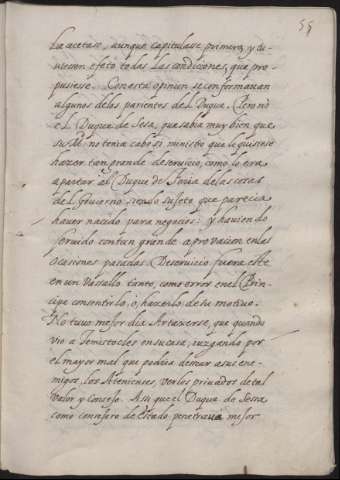 55
La acetase, aunque capitulase primero, y tu-
uiesen efeto todas las condiciones, que pro-
pusiesse. Con esta opinion se conformauan
algunos delos parientes del Duque. Pero nó
el Duque de Sesa, que sabia muy bien que
su Md. no tenia cabo si ministro que le quisiese
hazer tan grande deseruicio, como lo era
apartar al Duque de Feria de las cosas
del Gouierno siendo sujeto que parecia
hauer nacido para negocios: y hauiendo
seruido con tan grande aprouacion en las
ocasiones pasadas. Deseruicio fuera este
en un Vassallo tanto, como error en el Prin-
cipe consentirlo, o, hazerlo de su motiuo.
No tuuo mejor dia Artaxerse, que quando
vio a Temistocles en su casa, iuzgando por
el mayor mal que podria desear a sus ene-
migos, los Atenienses, verlos priuados de tal
valor y consejo. Asi que el Duque de Sessa
como consejero de Estado penetraua mejor